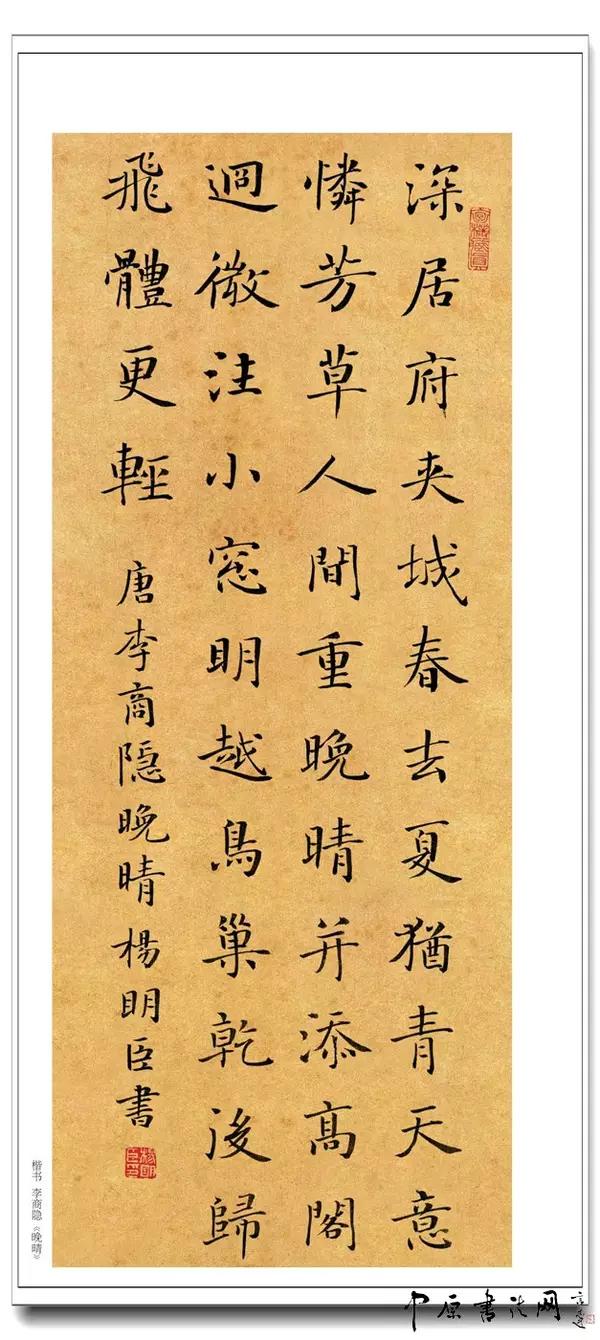 深居府夾城春去夏猶青天意
憐芳草人間重晚晴并添高閣
迥微注小窓明越鳥巢乾後歸
飛體更輕
唐李商隱晚晴楊明臣書
楷书 李商隐《晚晴》
中原书法网